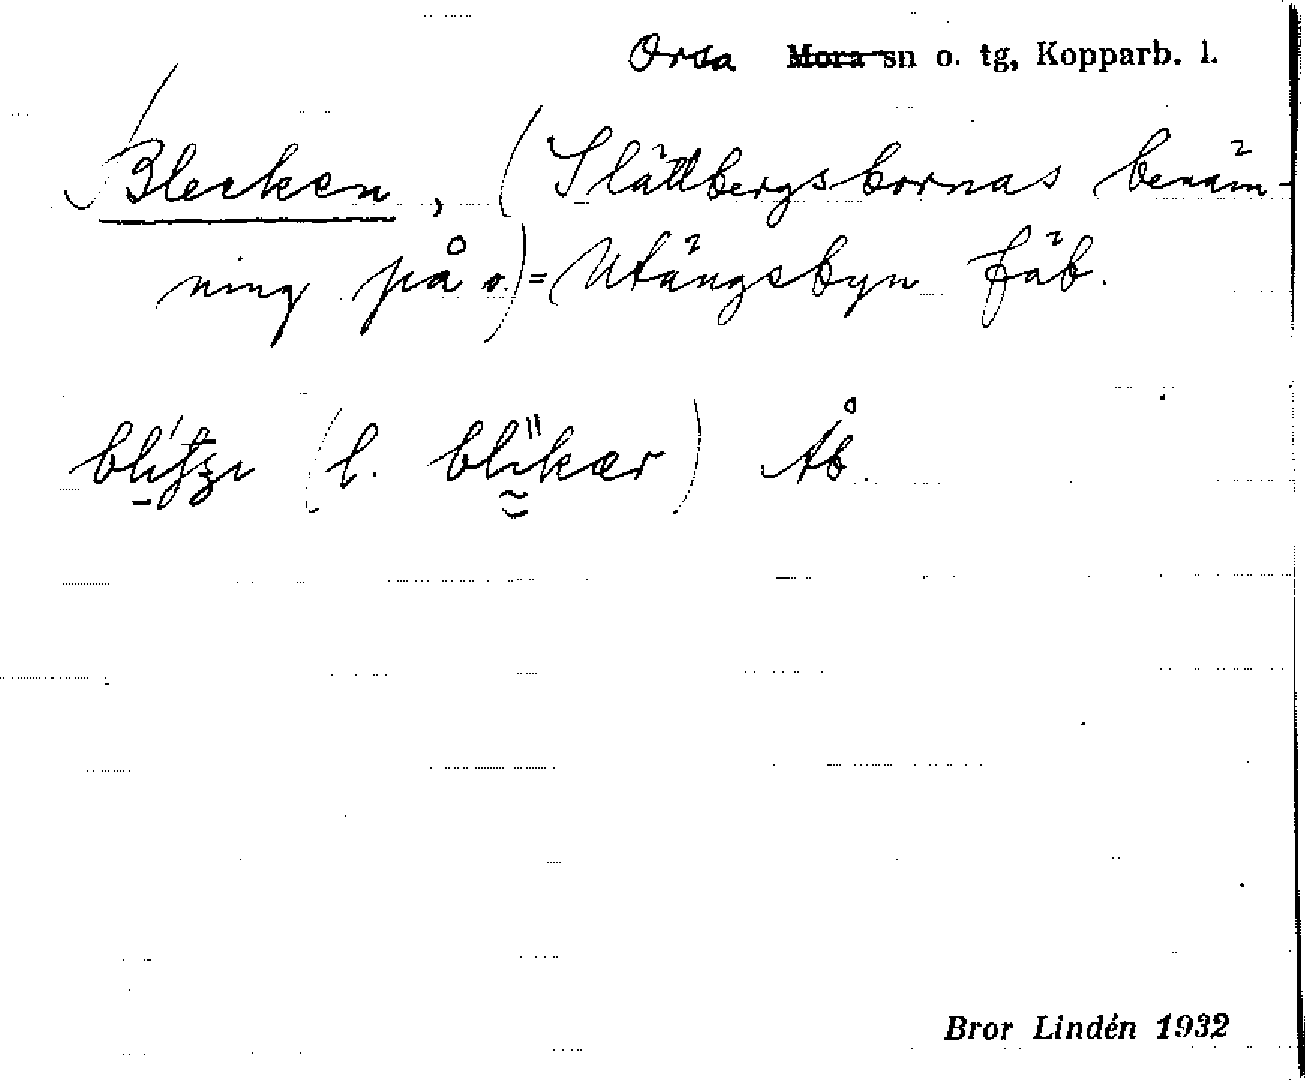 Orsa Mora sn o. tg, Kopparb. l.
Blecken, (Slättbergsbornas benäm-
ning på o.) = Utängsbyn fäb.
(l. blikær) Åb.
Bror Lindén 1932